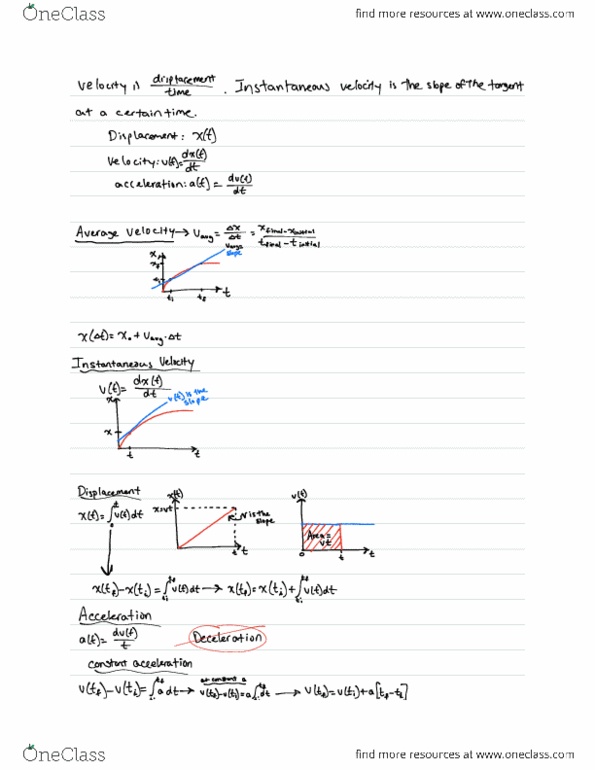 OneClass
find more resources at www.oneclass.com
velocity is displacement/time. Instantaneous velocity is the slope of the tangent
at a certain time.
Displacement: x(t)
Velocity: v(t)=dx(t)/dt
acceleration: a(t)=dv(t)/dt
Average velocity → Vavg = Δx/Δt = xfinal-xinitial/tfinal-tinitial
Vavg= slope
x
t
x(Δt)= x₀ + Vavg·Δt
Instantaneous Velocity
V(t)= dx(t)/dt
v(t) is the slope
x
x
t
t
Displacement
x(t)=∫v(t)dt
x(t)
x=vt
v is the slope
t
t
v(t)
Area= vt
0
t
t
x(tf)-x(ti)=∫v(t)dt → x(tf)=x(ti)+∫v(t)dt
Acceleration
a(t)= dv(t)/t
Deceleration
constant acceleration
at constant a
v(tf)-v(ti)=∫a dt → v(tf)-v(ti)=a∫dt → v(tf)=v(ti)+a[tf-ti]
OneClass
find more resources at www.oneclass.com